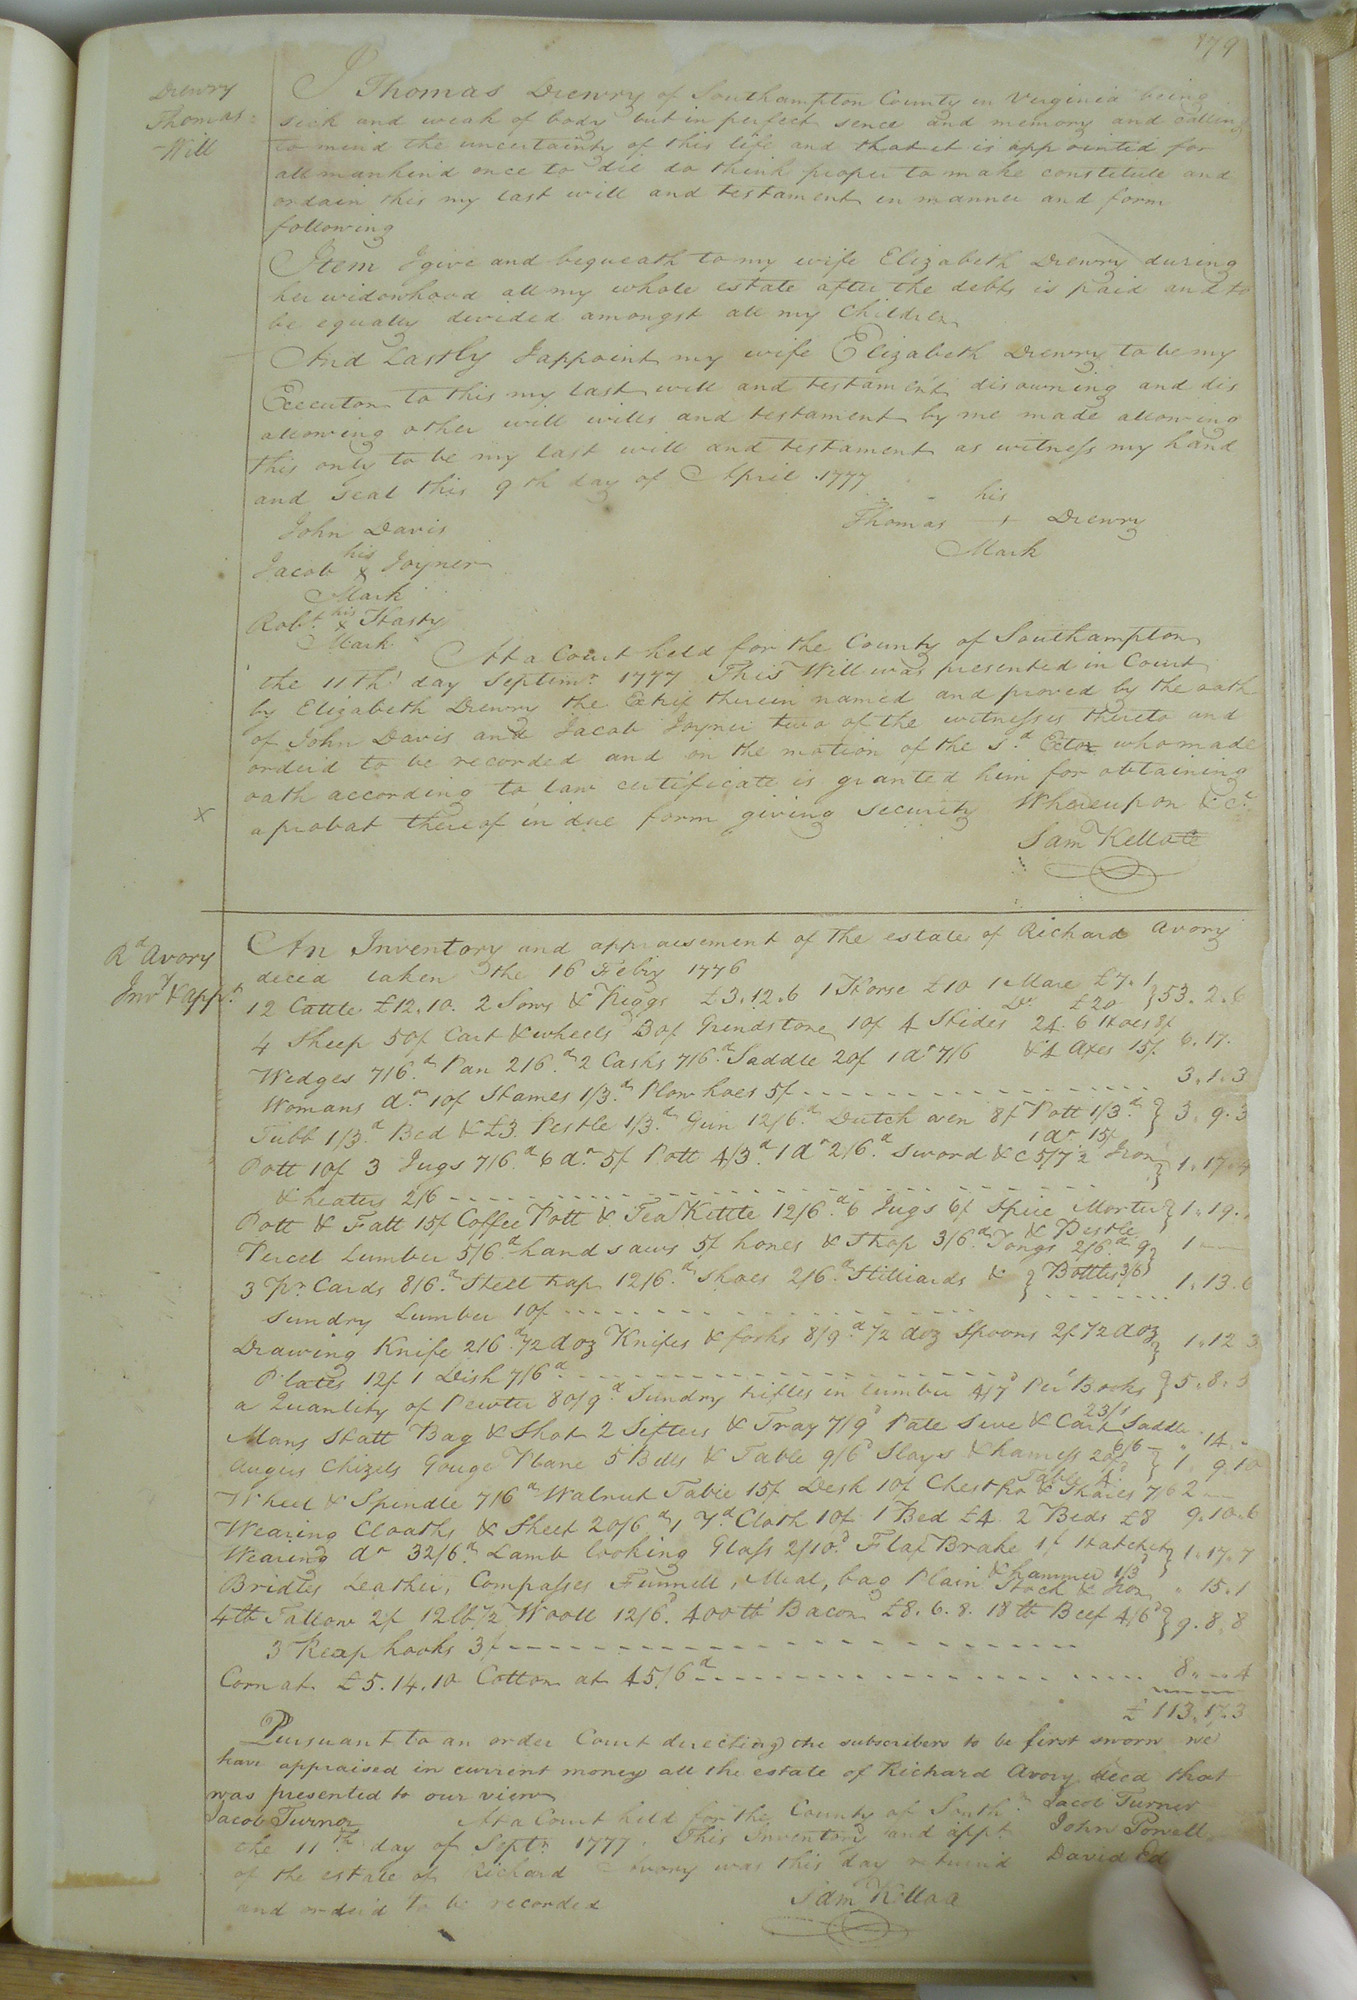 179
Drewry
Thomas
Will
I Thomas Drewry of Southampton County in Virginia being
sick and weak of body but in perfect sence and memory and calling
to mind the uncertainty of this life and that it is appointed for
all mankind once to die do think proper to make constitute and
ordain this my last will and testament in manner and form
following
Item I give and bequeath to my wife Elizabeth Drewry during
her widowhood all my whole estate after the debts is paid and to
be equally divided amongst all my Children
And Lastly I appoint my wife Elizabeth Drewry to be my
Executor to this my last will and testament disowning and dis
allowing other will wills and testament by me made allowing
this only to be my last will and testament as witness my hand
and seal this 9th day of April 1777
his
Thomas + Drewry
Mark
John Davis
his
Jacob x Joyner
Mark
Robt his x Hasty
Mark
At a Court held for the County of Southampton
the 11th day Septemr 1777 This Will was presented in Court
by Elizabeth Drewry the Extrix therein named and proved by the oath
of John Davis and Jacob Joyner two of the witnesses thereto and
orderd to be recorded and on the motion of the sd Extor who made
oath according to law certificate is granted him for obtaining
a probat thereof in due form giving security Whereupon &ct
x
Sam Kello
Rd Avory
Invy & appt
An Inventory and appraisement of the estate of Richard Avory
deced taken the 16 Febry 1776
12 Cattle £12.10. 2 Sows & Piggs £3.12.6 1 Horse £10 1 Mare £7.1
Do £20 } 53.2.6
4 Sheep 50/ Cart & wheels Grindstone 10/ 4 Hides 24. 6 Hoes 8/
Wedges 7/6d Pan 2/6d 2 Casks 7/6d Saddle 20/ 1 do 7/6 & 4 Axes 15/. 6.17.
Womans do 10/ Stames 1/3d Plow hoes 5/ 3.1.3
Tubb 1/3d Bed & £3 Pestle 1/3d Gun 12/6d Dutch oven 8/ Pott 1/3d } 3.9.3
1 do 15/
Pott 10/ 3 Jugs 7/6d 6 do 5/ Pott 4/3d 1 do 2/6d Sword &c 5/7 2 Iron
& heaters 2/6 } 1.17.4
Pott & Fatt 15/ Coffee Pott & Tea Kettle 12/6d 6 Jugs 6/ Spice Morter } 1.19.
& Pestle
Percel Lumber 5/6d hand saws 5/ hones & Strap 3/6d Tongs 2/6d 9 } 1
3 Pr Cards 8/6d Steel trap 12/6d Shoes 2/6d Stilliards & } Bottles 3/6
sundry Lumber 10/ 1.13.6
Drawing Knife 2/6d 1/2 doz Knifes & forks 8/9d 1/2 doz Spoons 2/ 1/2 doz
Plates 12/ 1 Dish 7/6d } 1.12.3
a Quantity of Pewter 80/9d Sundry trifles in lumber 4/7d Books } 5.8.5
23/1
Mans Hatt Bag & Shot 2 Sifters & Tray 7/9d Pate Sive & Cart Saddle
6/6 14.
Augus Chizels Gouge Plane 5 Bells & Table 9/6 Slays & harness 20/ } 1.9.10
Wheel & Spindle 7/6d Walnut Table 15/ Desk 10/ Chest Chairs 7/6 2
Wearing Cloaths & Sheet 20/6d 1 Yd Cloth 10/ 1 Bed £4 2 Beds £8 9.10.6
Wearing do 32/6d Lamb looking Glass 2/10d Flax Brake 1/ Hatchet } 1.17.7
& hammer 1/3
Bridles Leather, Compasses Funnell, Meal, bag Plain Stock & Iron 15.1
4 lb Tallow 2/ 12 lb 1/2 Wooll 12/6d 400 lb Bacon £8.6.8. 18 lb Beef 4/6d
3 Reap hooks 3/ } 9.8.8
Corn at £5.14.10 Cotton at 45/6d 8..4
£113.17.3
Pursuant to an order Court directing the subscribers to be first sworn we
have appraised in current money all the estate of Richard Avory deced that
was presented to our view
Jacob Turner
Jacob Turner
John Powell
David Ed
At a Court held for the County of South.
the 11th day of Septr 1777. This Inventory and appt
of the estate of Richard Avory was this day returnd
and orderd to be recorded
Sam Kelloa